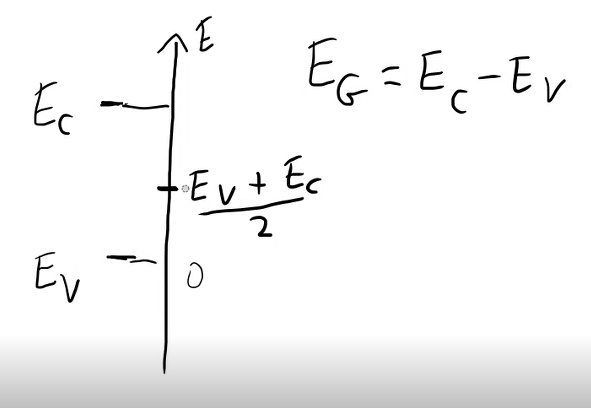 E
E_G = E_C - E_V
E_C
E_V + E_C
2
E_V
0